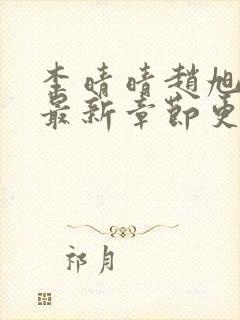 李晴晴趙旭
最新章節更
祁月